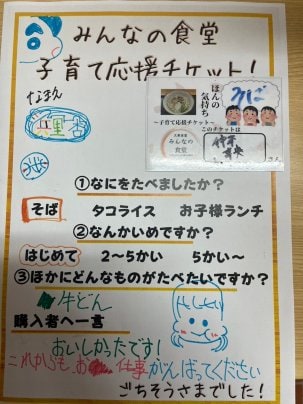 みんなの食堂
子育て応援チケット！
なまえ
ほんの気持ち
～子育て応援チケット～
このチケットは
みんなの食堂
①なにをたべましたか？
そば　タコライス　お子様ランチ
②なんかいめですか？
はじめて　2～5かい　5かい～
③ほかにどんなものがたべたいですか？
牛どん
購入者へ一言
おいしかったです！
これからも お仕事 がんばってください
ごちそうさまでした！